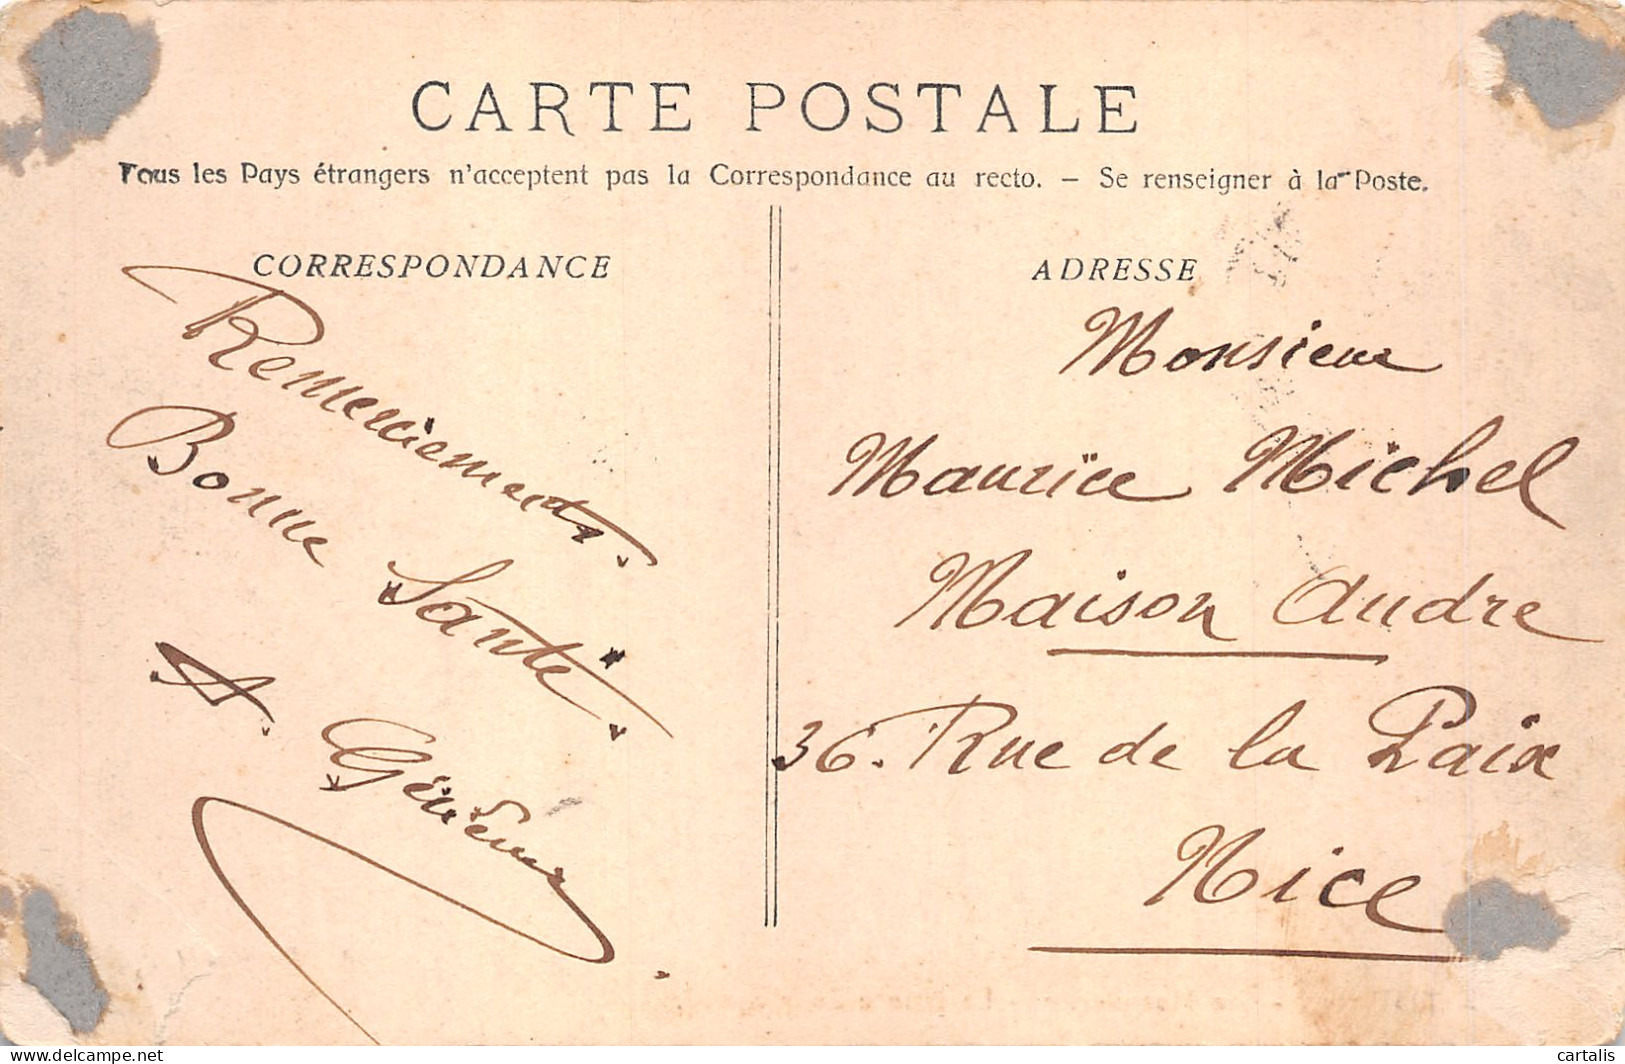 CARTE POSTALE
Tous les Pays étrangers n'acceptent pas la Correspondance au recto. – Se renseigner à la Poste.
CORRESPONDANCE
Remerciements.
Bonne Santé.
A.
ADRESSE
Monsieur
Maurice Michel
Maison Andre
36. Rue de la Paix
Nice
cartalis
delcampe.net